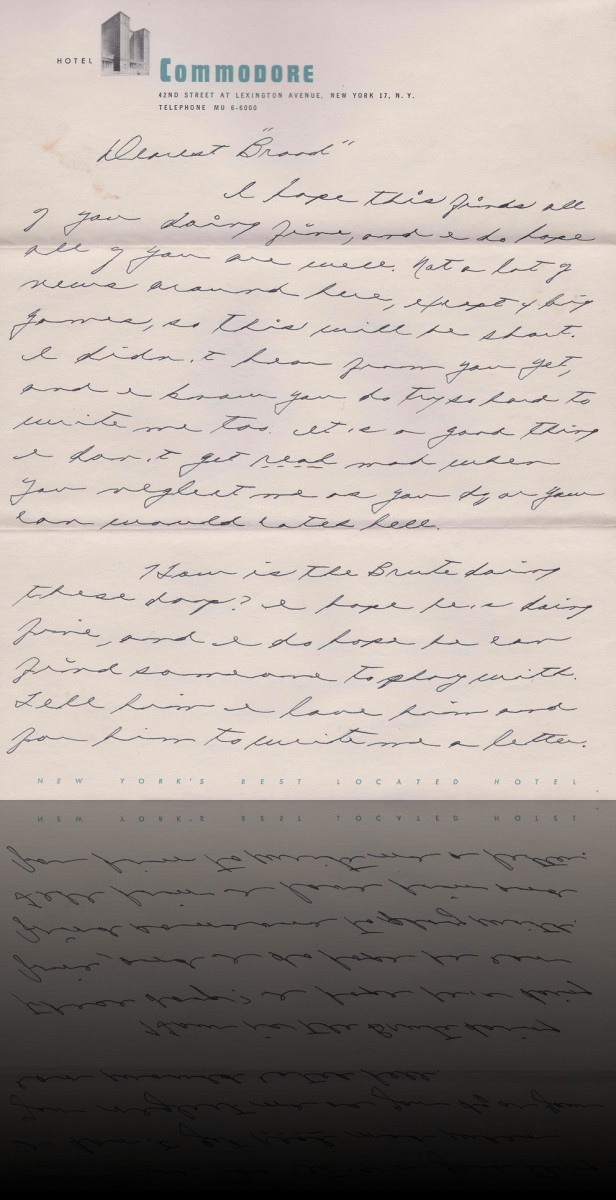 HOTEL COMMODORE
42ND STREET AT LEXINGTON AVENUE, NEW YORK 17, N.Y.
TELEPHONE MU 6-6000
Dearest "Brood"
I hope this finds all
of you doing fine, and I do hope
all of you are well. Not a lot of
news around here, except 4 big
games, so this will be short.
I didn't hear from you yet,
and I know you do try so hard to
write me too. It is a good thing
I don't get real mad when
you neglect me as you do or your
ears would catch hell.
How is the Brute doing
these days? I hope he is doing
fine, and I do hope he can
find someone to play with.
Tell him I love him and
for him to write me a letter.
NEW YORK'S BEST LOCATED HOTEL